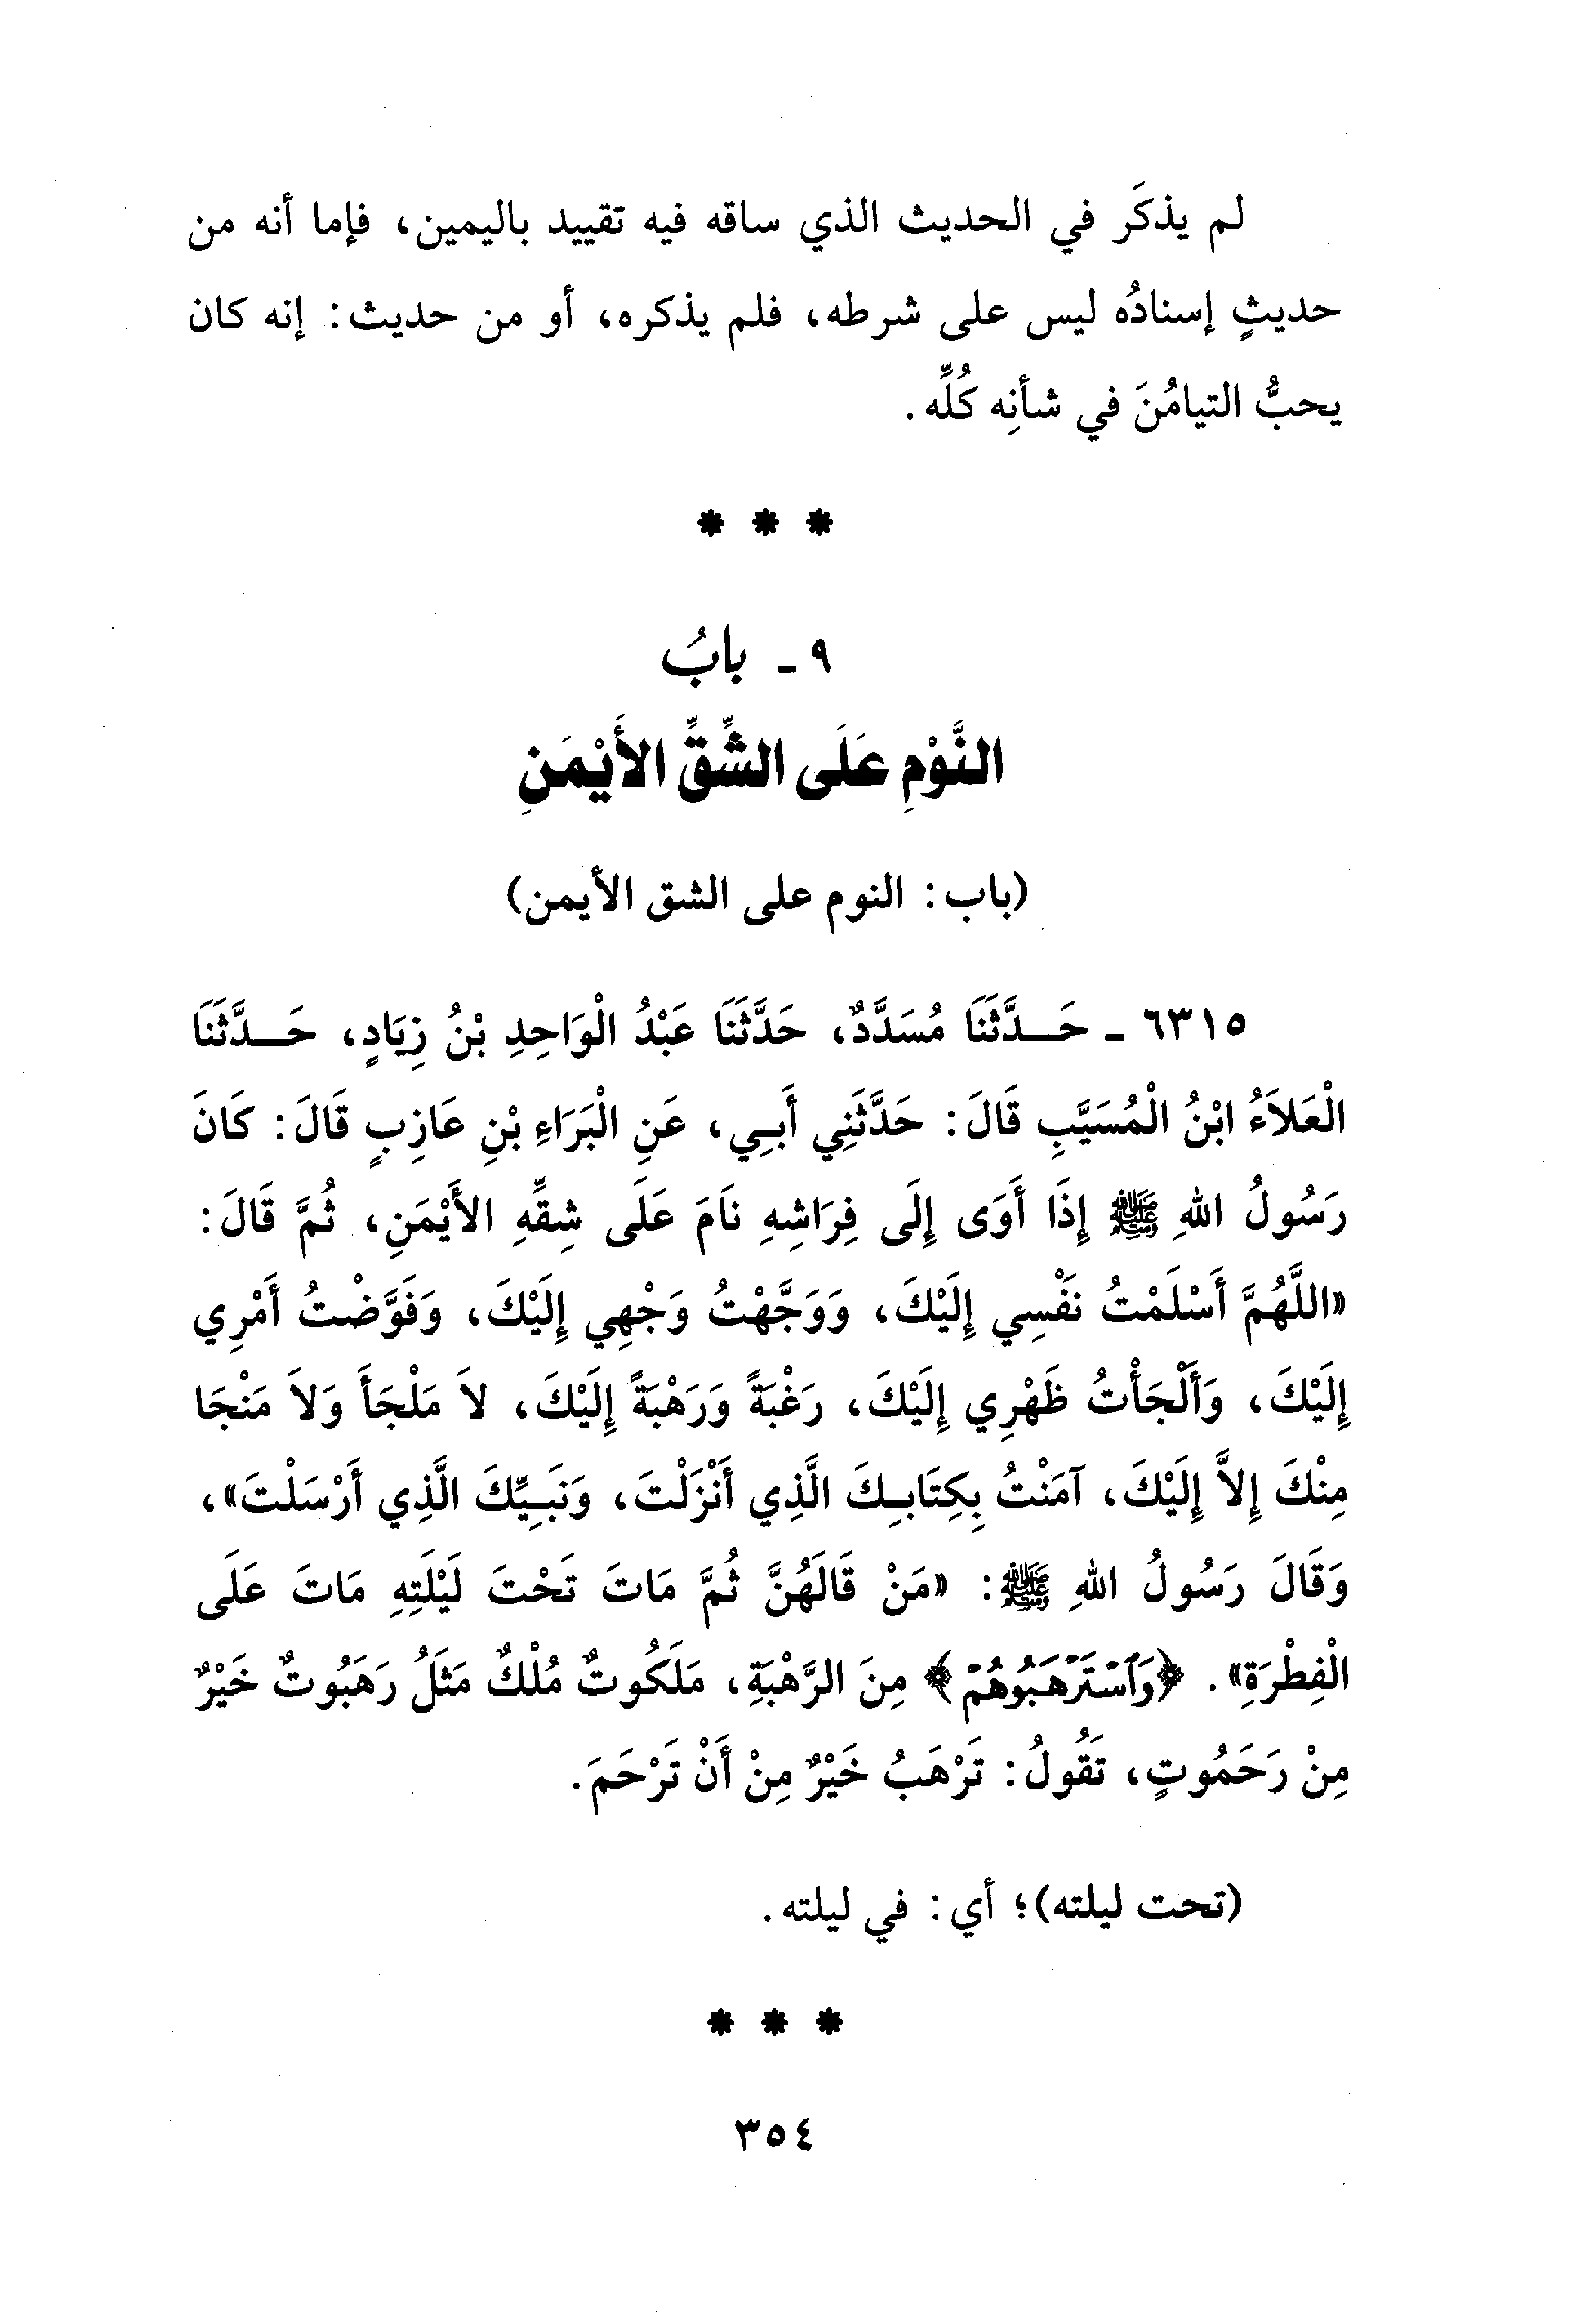 لم يذكَر في الحديث الذي ساقه فيه تقييد باليمين، فإما أنه من
حديثٍ إسنادُه ليس على شرطه، فلم يذكره، أو من حديث: إنه كان
يحبُّ التيامُنَ في شأنِه كُلِّه.
* * *
٩ - بابُ
النَّوْمِ عَلَى الشِّقِّ الأَيْمَنِ
(باب: النوم على الشق الأيمن)
٦٣١٥ - حَـدَّثَنَا مُسَدَّدٌ، حَدَّثَنَا عَبْدُ الْوَاحِدِ بْنُ زِيَادٍ، حَـدَّثَنَا
الْعَلاَءُ ابْنُ الْمُسَيَّبِ قَالَ: حَدَّثَنِي أَبِي، عَنِ الْبَرَاءِ بْنِ عَازِبٍ قَالَ: كَانَ
رَسُولُ اللهِ ﷺ إِذَا أَوَى إِلَى فِرَاشِهِ نَامَ عَلَى شِقِّهِ الأَيْمَنِ، ثُمَّ قَالَ:
«اللَّهُمَّ أَسْلَمْتُ نَفْسِي إِلَيْكَ، وَوَجَّهْتُ وَجْهِي إِلَيْكَ، وَفَوَّضْتُ أَمْرِي
إِلَيْكَ، وَأَلْجَأْتُ ظَهْرِي إِلَيْكَ، رَغْبَةً وَرَهْبَةً إِلَيْكَ، لاَ مَلْجَأَ وَلاَ مَنْجَا
مِنْكَ إِلاَّ إِلَيْكَ، آمَنْتُ بِكِتَابِكَ الَّذِي أَنْزَلْتَ، وَنَبِيِّكَ الَّذِي أَرْسَلْتَ»،
وَقَالَ رَسُولُ اللهِ ﷺ: «مَنْ قَالَهُنَّ ثُمَّ مَاتَ تَحْتَ لَيْلَتِهِ مَاتَ عَلَى
الْفِطْرَةِ». ﴿وَٱسْتَرْهَبُوهُمْ﴾ مِنَ الرَّهْبَةِ، مَلَكُوتٌ مُلْكٌ مَثَلُ رَهَبُوتٌ خَيْرٌ
مِنْ رَحَمُوتٍ، تَقُولُ: تَرْهَبُ خَيْرٌ مِنْ أَنْ تَرْحَمَ.
(تحت ليلته)؛ أي: في ليلته.
* * *
٣٥٤